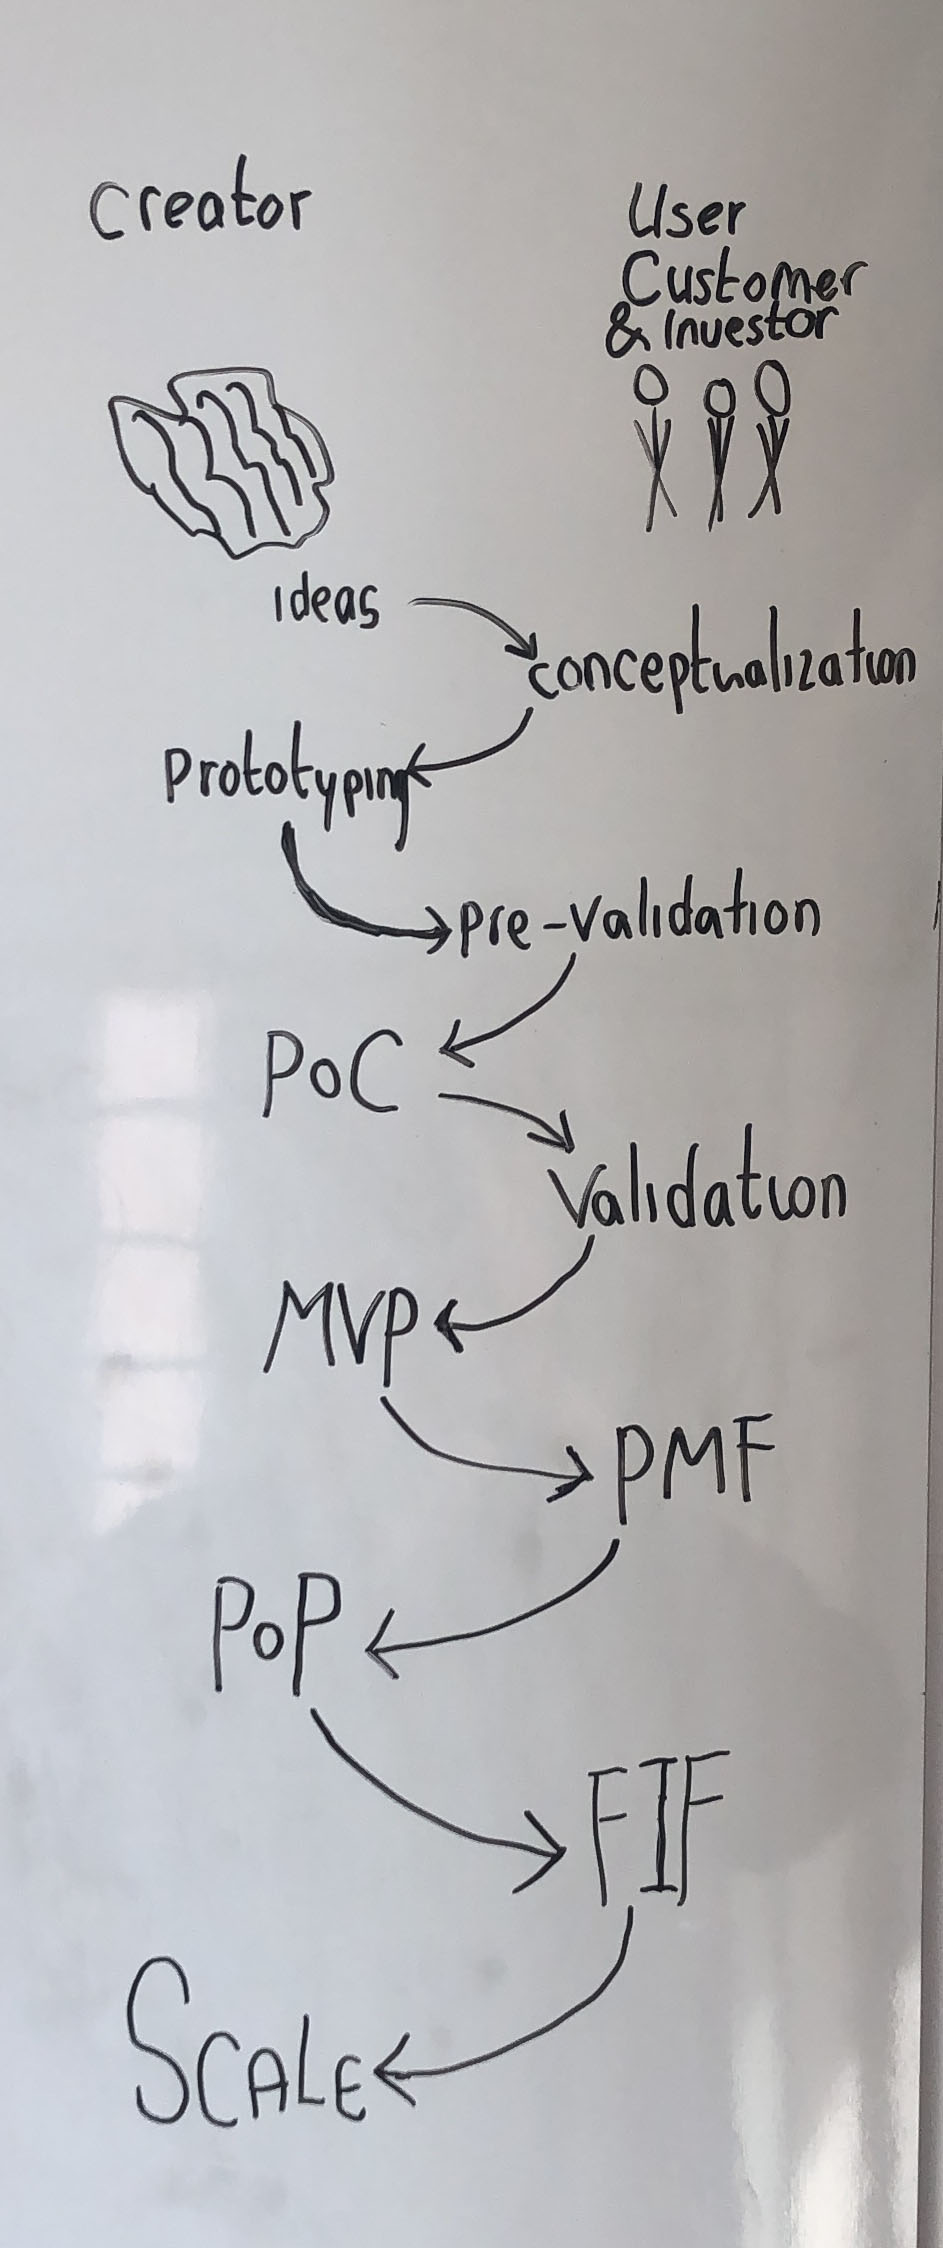 Creator
User
Customer
& Investor
ideas
conceptualization
Prototyping
pre-validation
PoC
Validation
MVP
PMF
PoP
FIF
SCALE